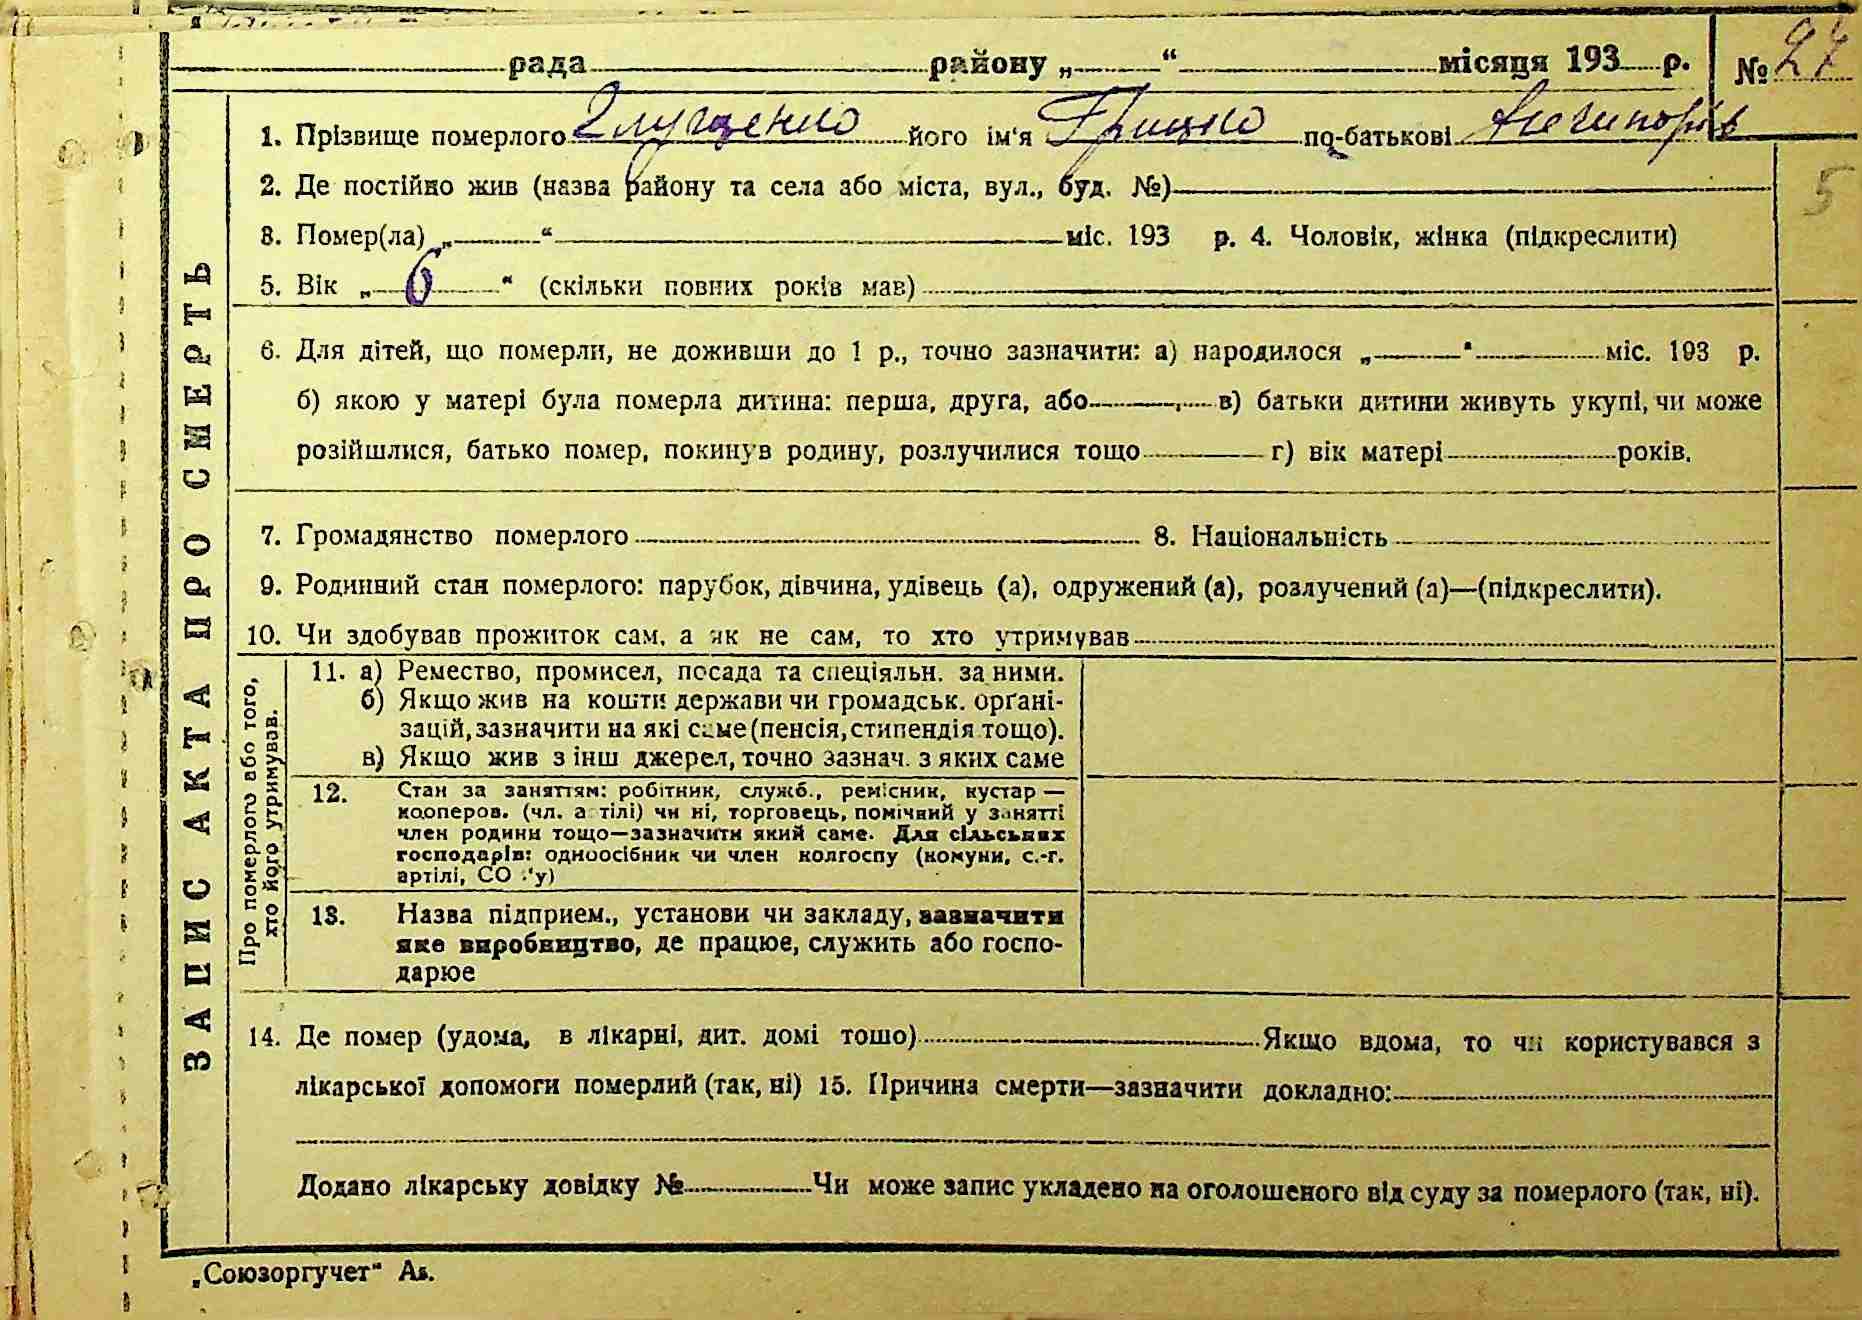 рада району „ “ місяця 193 р. № 27
1. Прізвище померлого Глущенко його ім'я Грицко по-батькові Ничипорів
2. Де постійно жив (назва району та села або міста, вул., буд. №)
5
3. Помер(ла) „ “ міс. 193 р. 4. Чоловік, жінка (підкреслити)
5. Вік „ 6 “ (скільки повних років мав)
6. Для дітей, що померли, не доживши до 1 р., точно зазначити: а) народилося „ “ міс. 193 р.
б) якою у матері була померла дитина: перша, друга, або , в) батьки дитини живуть укупі, чи може
розійшлися, батько помер, покинув родину, розлучилися тощо г) вік матері років.
7. Громадянство померлого 8. Національність
9. Родинний стан померлого: парубок, дівчина, удівець (а), одружений (а), розлучений (а)—(підкреслити).
10. Чи здобував прожиток сам, а як не сам, то хто утримував
ЗАПИС АКТА ПРО СМЕРТЬ
Про померлого або того,
хто його утримував.
11. а) Ремество, промисел, посада та спеціяльн. за ними.
б) Якщо жив на кошти держави чи громадськ. орґані-
зацій, зазначити на які саме (пенсія, стипендія тощо).
в) Якщо жив з інш джерел, точно зазнач. з яких саме
12. Стан за заняттям: робітник, служб., ремісник, кустар —
кооперов. (чл. артілі) чи ні, торговець, помічний у занятті
член родини тощо—зазначити який саме. Для сільських
господарів: одноосібник чи член колгоспу (комуни, с.-г.
артілі, СО :'у)
13. Назва підприєм., установи чи закладу, зазначити
яке виробництво, де працює, служить або госпо-
дарює
14. Де помер (удома, в лікарні, дит. домі тошо) Якщо вдома, то чи користувався з
лікарської допомоги померлий (так, ні) 15. Причина смерти—зазначити докладно:
Додано лікарську довідку № Чи може запис укладено на оголошеного від суду за померлого (так, ні).
„Союзоргучет“ Аз.